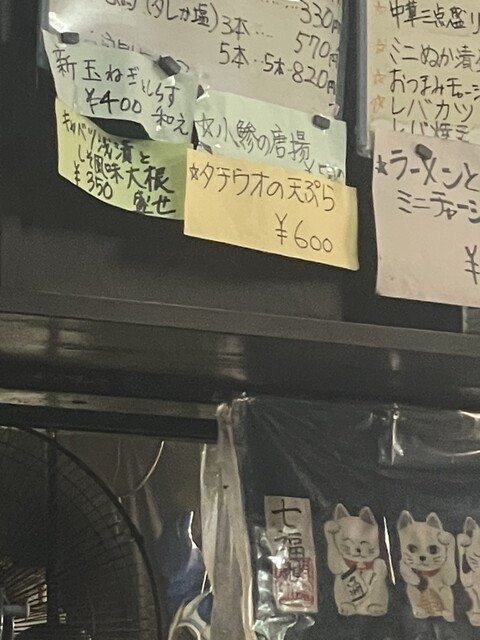 (タレか塩)
330円
3本‥‥ 570円
5本‥5本‥820円
新玉ねぎとしらす
¥400 和え
キャベツ浅漬と
しそ風味大根
¥350
☆小鯵の唐揚
★タチウオの天ぷら
¥600
中華三点盛り
☆ミニぬか漬
☆おつまみチャー
☆レバカツ
★ラーメンと
ミニチャー
¥
七福